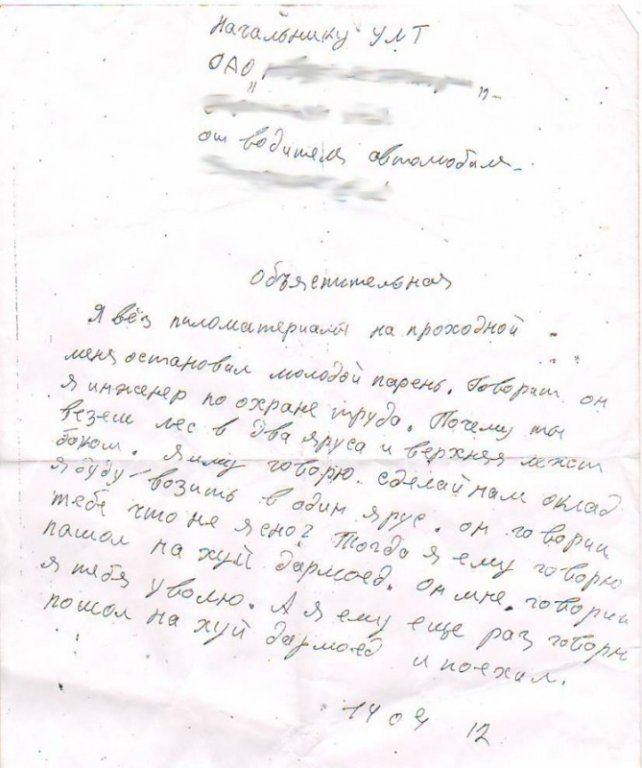 Начальнику УЛТ
ОАО "
"
от водителя автомобиля
Объястительная
Я вёз пиломатериалы на проходной
меня остановил молодой парень. Говорит он
я инженер по охране труда. Почему ты
везеш лес в два яруса и верхняя лежит
боком. Я ему говорю. сделай нам оклад
я буду возить в один ярус. он говорит
тебе что не ясно? Тогда я ему говорю
пашол на хуй дармоед. он мне говорит
я тебя уволю. А я ему еще раз говорю
пошол на хуй дармоед и поехал.
14 04 12